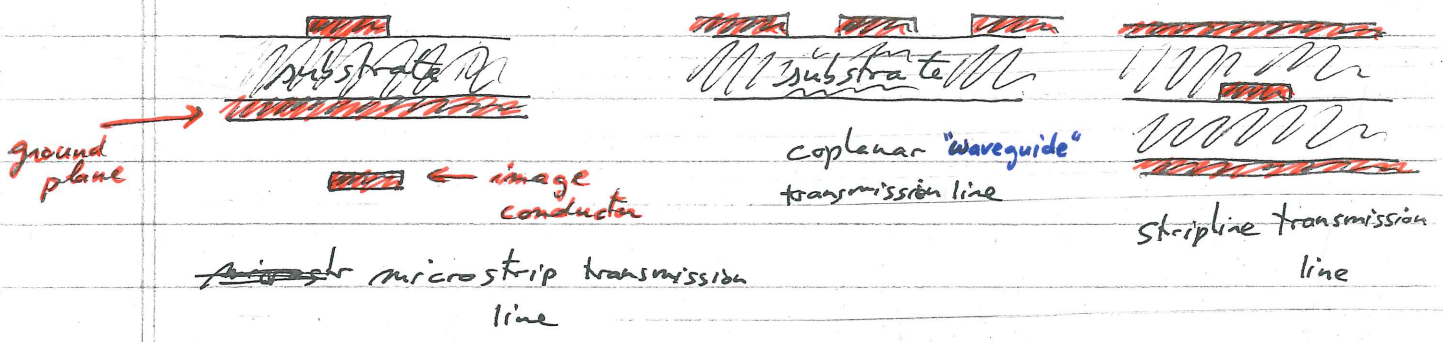 substrate
ground
plane
image
conductor
microstr microstrip transmission
line
substrate
coplanar "waveguide"
transmission line
stripline transmission
line